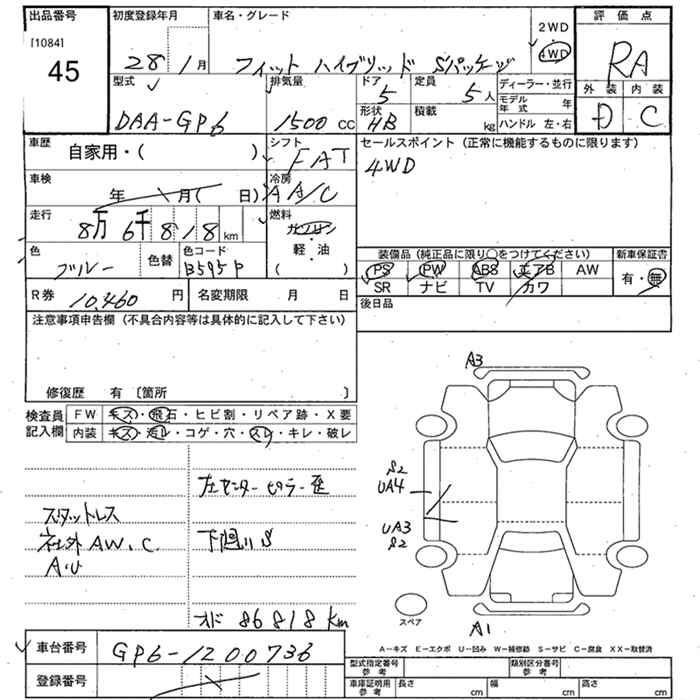 出品番号 初度登録年月 車名・グレード 評価点
[1084]
45
28 1月 フィット ハイブリッド Sパッケージ 2WD 4WD RA
型式 排気量 ドア 定員 ディーラー・並行 外装 内装
DAA-GP6 1500 cc 5 5人 モデル年式 年 D C
形状 積載
HB kg ハンドル 左・右
車歴 自家用・( ) シフト FAT セールスポイント (正常に機能するものに限ります)
4WD
車検 年 月( 日) 冷房 AA/C
走行 8万 6千 8 1 8 km 燃料 ガソリン
軽・油
( )
色 色替 色コード
ブルー B595P
装備品 (純正品に限り○をつけてください) 新車保証書
PS PW ABS エアB AW 有・無
SR ナビ TV カワ
R券 10,460 円 名変期限 月 日 後日品
注意事項申告欄 (不具合内容等は具体的に記入して下さい)
修復歴 有 〔箇所 〕
検査員記入欄 FW キズ・飛石・ヒビ割・リペア跡・X要
内装 キズ・汚レ・コゲ・穴・スレ・キレ・破レ
A3
左センターピラー歪
S2
UA4
スタットレス
社外AW、C
下廻りS
UA3
S2
オド 86818km
スペア
A1
A-キズ E-エクボ U-凹み W-補修跡 S-サビ C-腐食 XX-取替済
車台番号 GP6-1200736
登録番号
型式指定番号参考 類別区分番号参考
車庫証明用参考 長さ cm 幅 cm 高さ cm